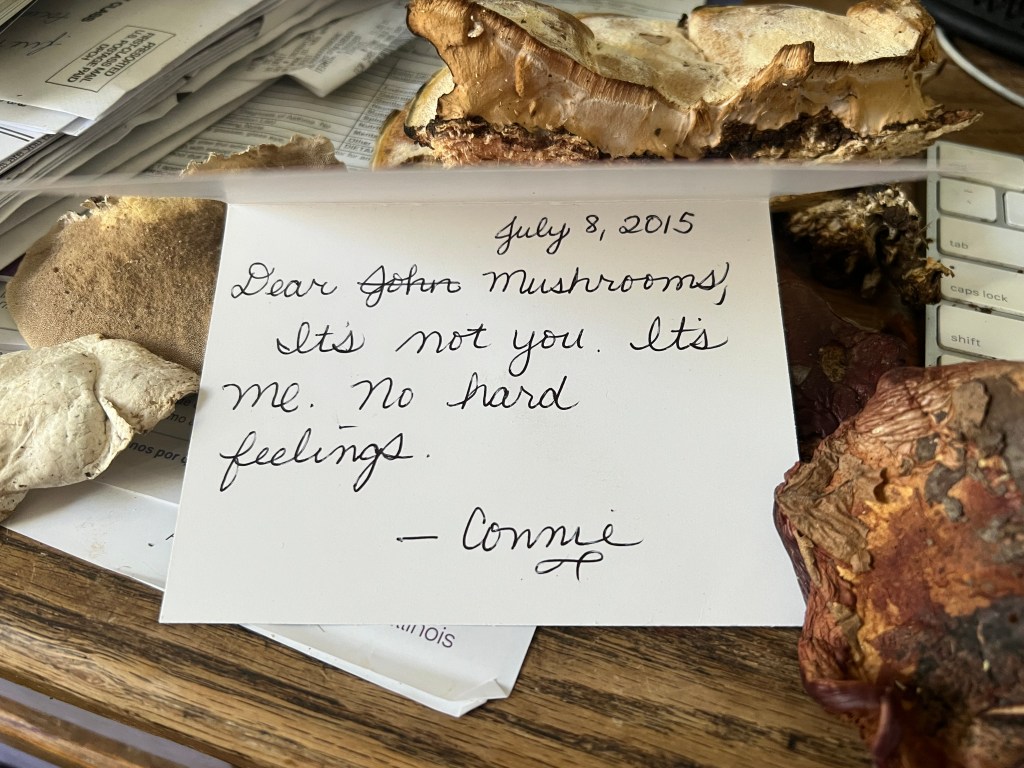 PRESORTED
FIRST-CLASS MAIL
U.S. POSTAGE
PAID
July 8, 2015
Dear John Mushrooms,
It's not you. It's
me. No hard
feelings.
— Connie
tab
caps lock
shift
nos por
Illinois